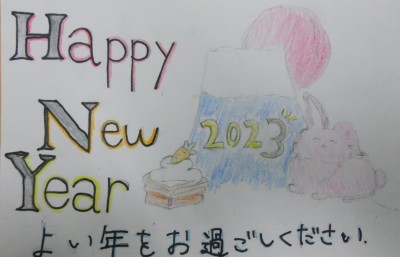 Happy
New
2023
Year
よい年をお過ごしください.